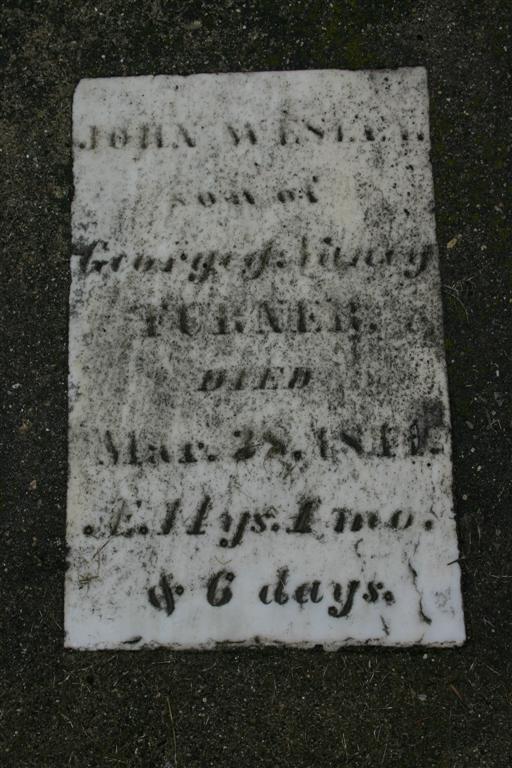 JOHN WESLEY.
son of
George & Nancy
TURNER.
DIED
Mar. 28,
Æ. 11 ys. 1 mo.
& 6 days.